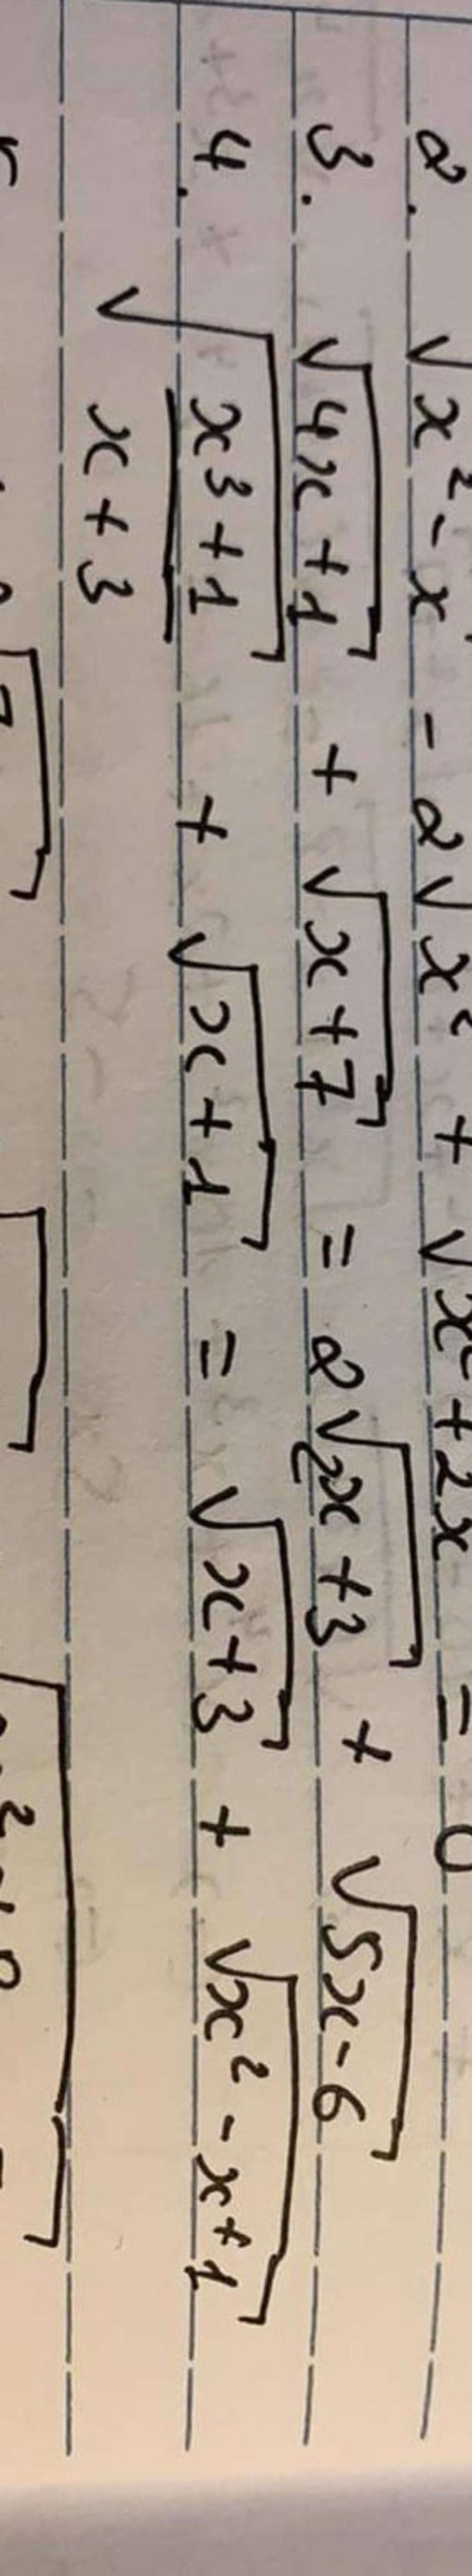 2. √x² - x - 2√x² + √x² + 2x = 0
3. √4x + 1 + √x + 7 = 2√2x + 3 + √5x - 6
4. √(x³ + 1)/(x + 3) + √x + 1 = √x + 3 + √x² - x + 1